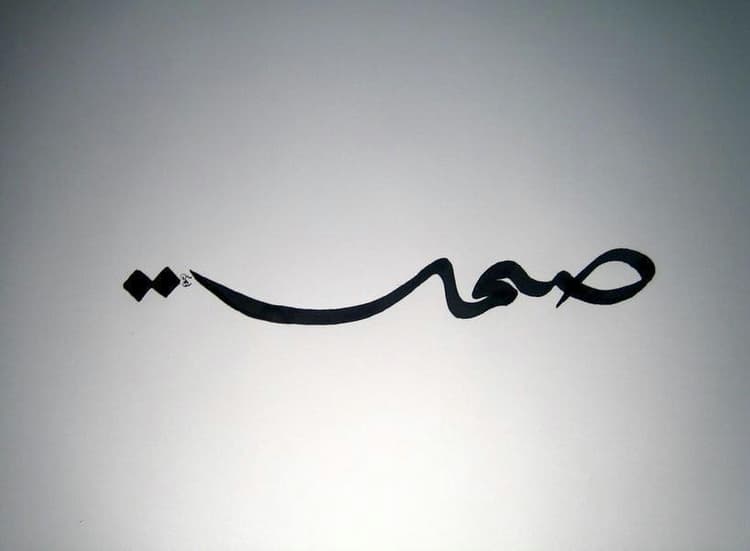 صمت